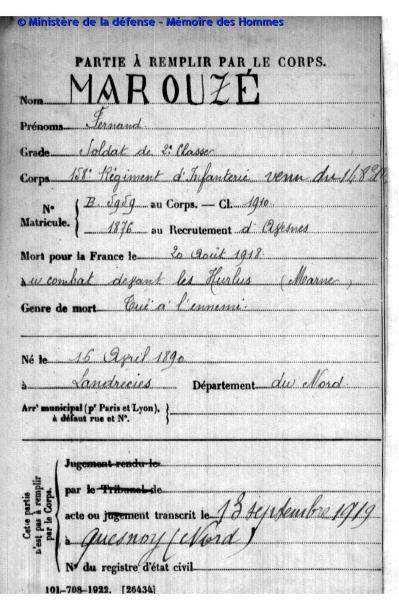 © Ministère de la défense - Mémoire des Hommes
PARTIE À REMPLIR PAR LE CORPS.
Nom MAROUZÉ
Prénoms Fernand
Grade Soldat de 2e Classe
Corps 158e Régiment d'Infanterie venu du 148e
N° Matricule. { B. 5959 au Corps. — Cl. 1910
1876 au Recrutement d'Avesnes
Mort pour la France le 20 Août 1918
à au combat devant les Hurlus (Marne)
Genre de mort Tué à l'ennemi
Né le 16 Avril 1890
à Landrecies Département du Nord
Arrt municipal (pr Paris et Lyon), }
à défaut rue et N°.
Cette partie n'est pas à remplir par le Corps.
Jugement rendu le
par le Tribunal de
acte ou jugement transcrit le 13 septembre 1919
à Quesnoy (Nord)
N° du registre d'état civil
101-708-1922. [26434]